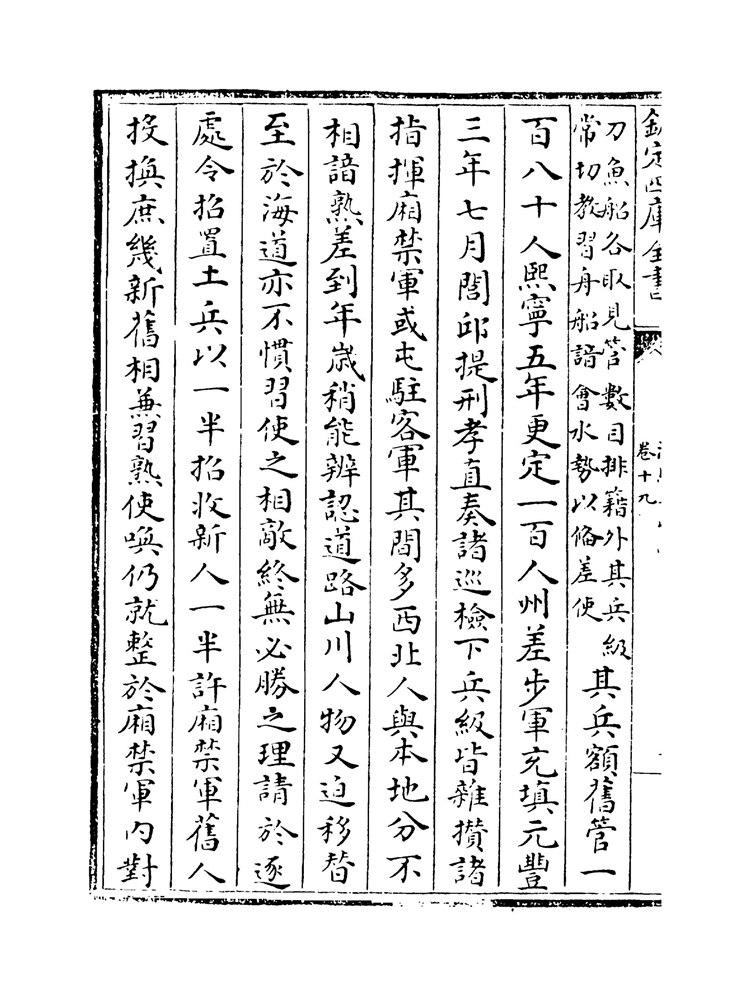 欽定四庫全書
卷十九
刀魚船各取見管數目排籍外其兵級
常切教習舟船諳會水勢以俻差使
其兵額舊管一
百八十人熙寧五年更定一百人州差步軍充填元豐
三年七月閭邱提刑孝直奏諸巡檢下兵級皆雜攢諸
指揮廂禁軍或屯駐客軍其間多西北人與本地分不
相諳熟差到年歲稍能辨認道路山川人物又迫移替
至於海道亦不慣習使之相敵終無必勝之理請於逐
處令招置土兵以一半招收新人一半許廂禁軍舊人
投換庶幾新舊相兼習熟使喚仍就整於廂禁軍內對